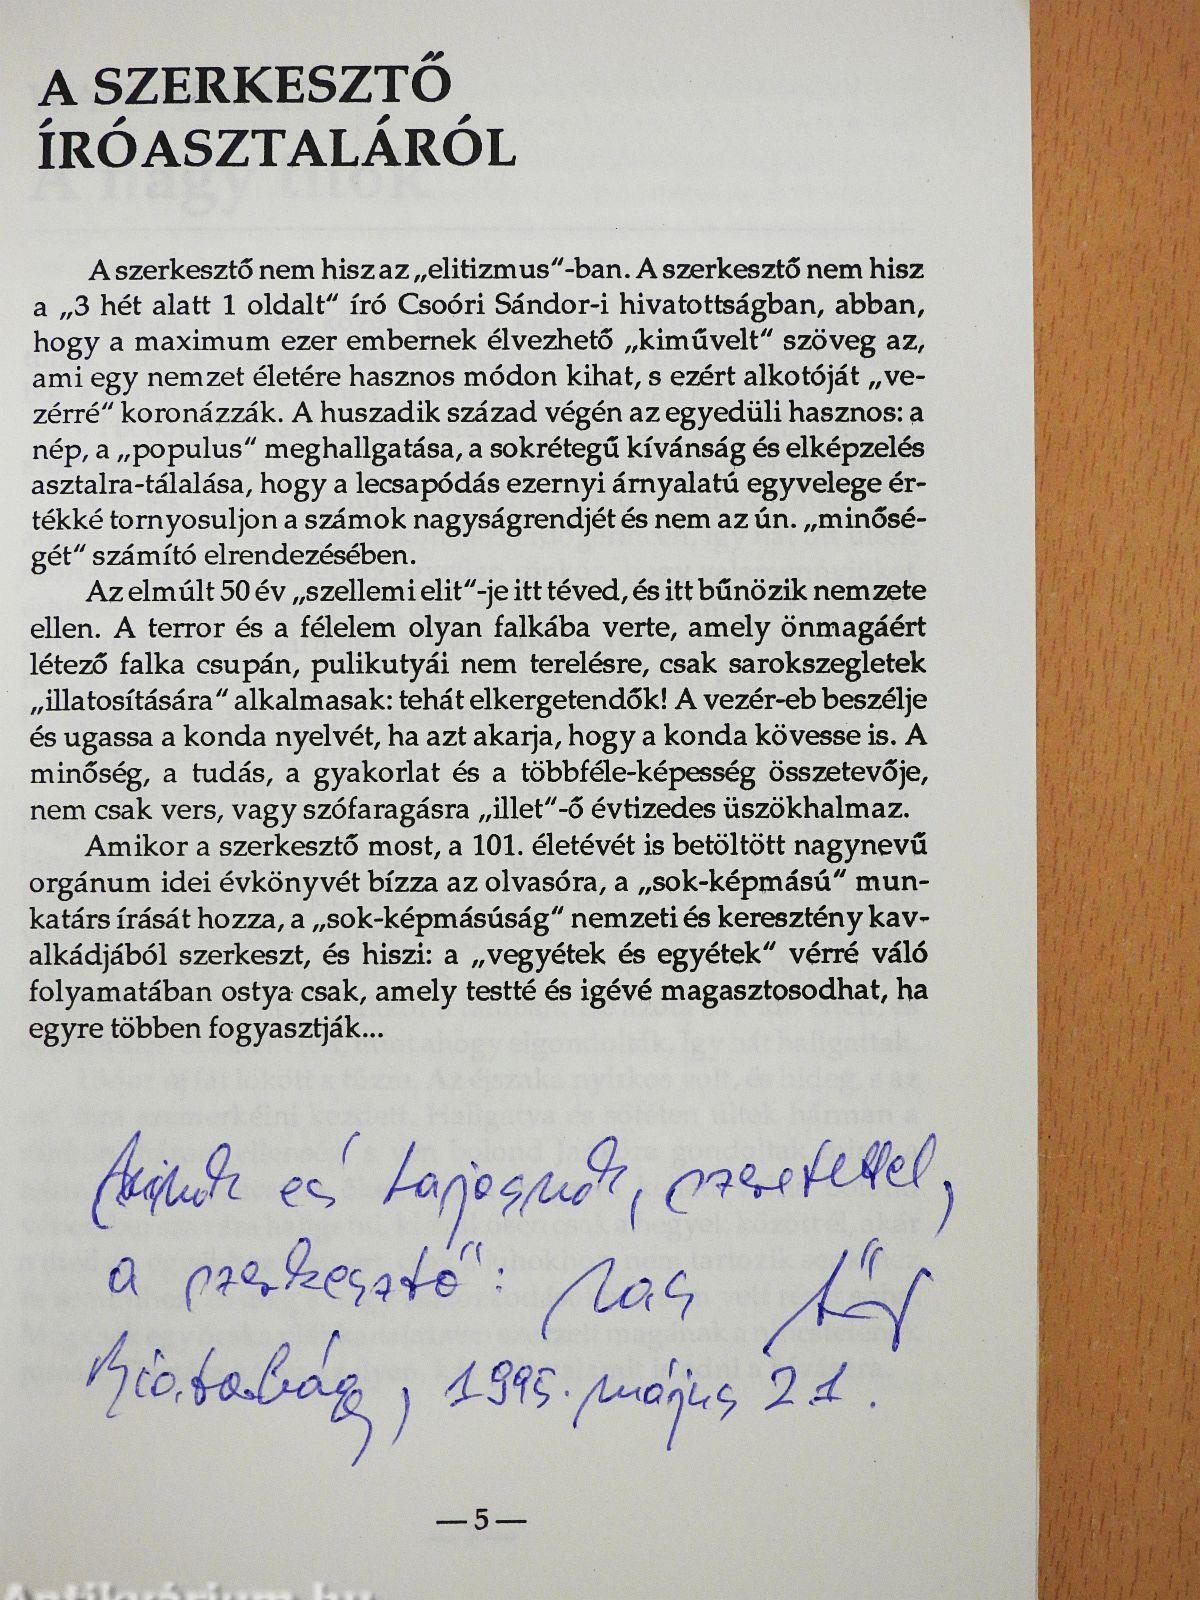 A SZERKESZTŐ
ÍRÓASZTALÁRÓL
A nagy titok
A szerkesztő nem hisz az „elitizmus"-ban. A szerkesztő nem hisz
a „3 hét alatt 1 oldalt" író Csoóri Sándor-i hivatottságban, abban,
hogy a maximum ezer embernek élvezhető „kiművelt" szöveg az,
ami egy nemzet életére hasznos módon kihat, s ezért alkotóját „ve-
zérré" koronázzák. A huszadik század végén az egyedüli hasznos: a
nép, a „populus" meghallgatása, a sokrétegű kívánság és elképzelés
asztalra-tálalása, hogy a lecsapódás ezernyi árnyalatú egyvelege ér-
tékké tornyosuljon a számok nagyságrendjét és nem az ún. „minősé-
gét" számító elrendezésében.
Az elmúlt 50 év „szellemi elit"-je itt téved, és itt bűnözik nemzete
ellen. A terror és a félelem olyan falkába verte, amely önmagáért
létező falka csupán, pulikutyái nem terelésre, csak sarokszegletek
„illatosítására" alkalmasak: tehát elkergetendők! A vezér-eb beszélje
és ugassa a konda nyelvét, ha azt akarja, hogy a konda kövesse is. A
minőség, a tudás, a gyakorlat és a többféle-képesség összetevője,
nem csak vers, vagy szófaragásra „illet"-ő évtizedes üszökhalmaz.
Amikor a szerkesztő most, a 101. életévét is betöltött nagynevű
orgánum idei évkönyvét bízza az olvasóra, a „sok-képmású" mun-
katárs írását hozza, a „sok-képmásúság" nemzeti és keresztény kav-
alkádjából szerkeszt, és hiszi: a „vegyétek és egyétek" vérré váló
folyamatában ostya csak, amely testté és igévé magasztosodhat, ha
egyre többen fogyasztják...
és Lajosnak, szeretettel,
a szerkesztő:
Biatorbágy, 1995. május 21.
— 5 —
Antikvárium.hu